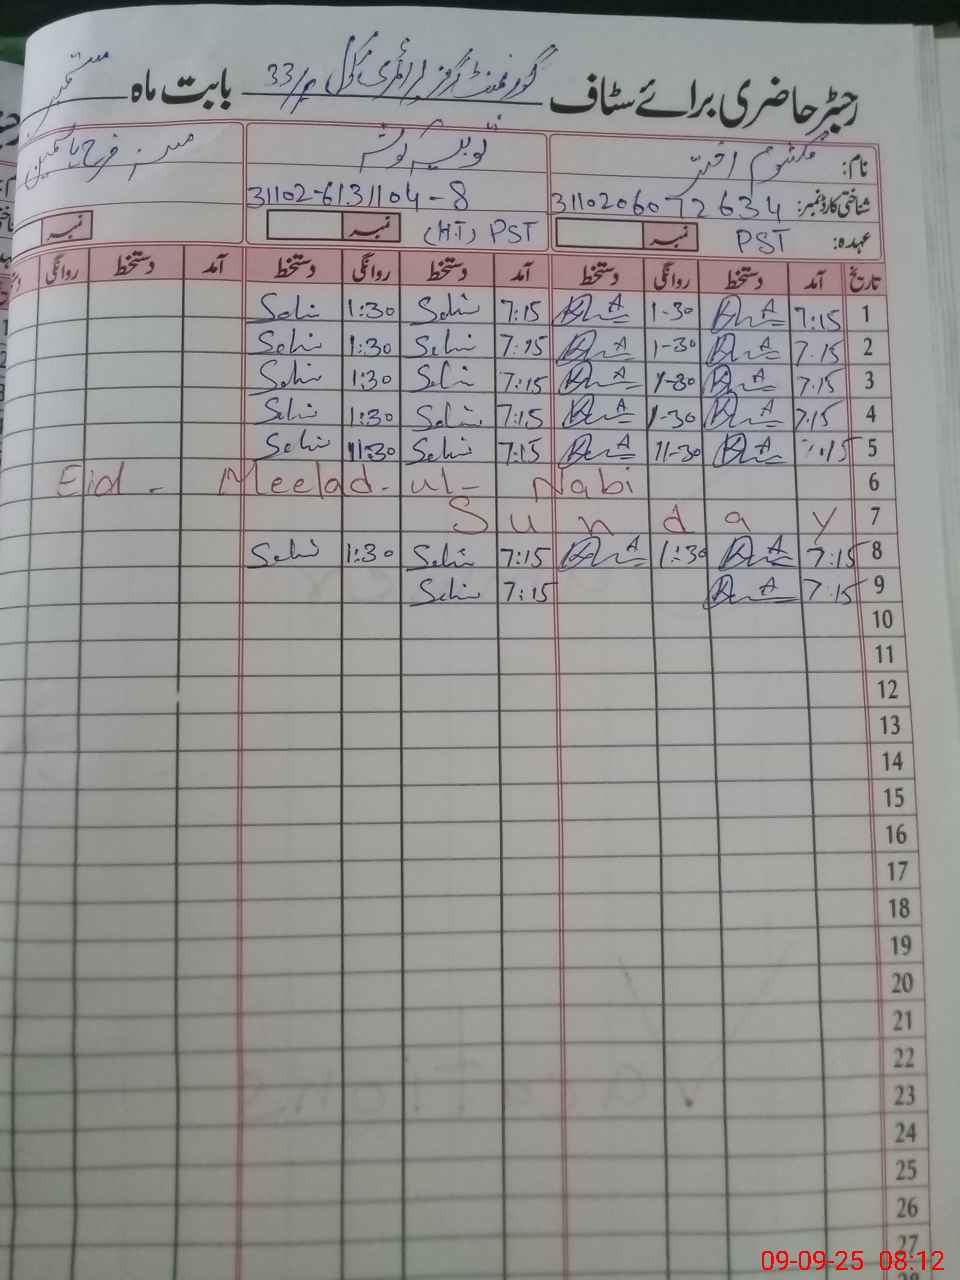 رجسٹر حاضری برائے سٹاف گورنمنٹ گرلز پرائمری سکول 33/ بابت ماہ ستمبر
نام: کلثوم اختر ثوبیہ کوثر مسز فرح یاسمین
شناختی کارڈ نمبر: 3110206072634 31102-6131104-8
عہدہ: PST نمبر (H.T) PST نمبر نمبر
تاریخ آمد دستخط روانگی دستخط آمد دستخط روانگی دستخط آمد دستخط روانگی
1 7:15 1-30 7:15 1:30
2 7.15 1-30 7:15 1:30
3 7.15 1-30 7:15 1:30
4 7:15 1-30 7:15 1:30
5 7:15 11-30 7:15 11:30
6 Eid - Meelad-ul- Nabi
7 Sunday
8 7:15 1:30 7:15 1:30
9 7:15 7:15
10
11
12
13
14
15
16
17
18
19
20
21
22
23
24
25
26
27
28
09-09-25 08:12